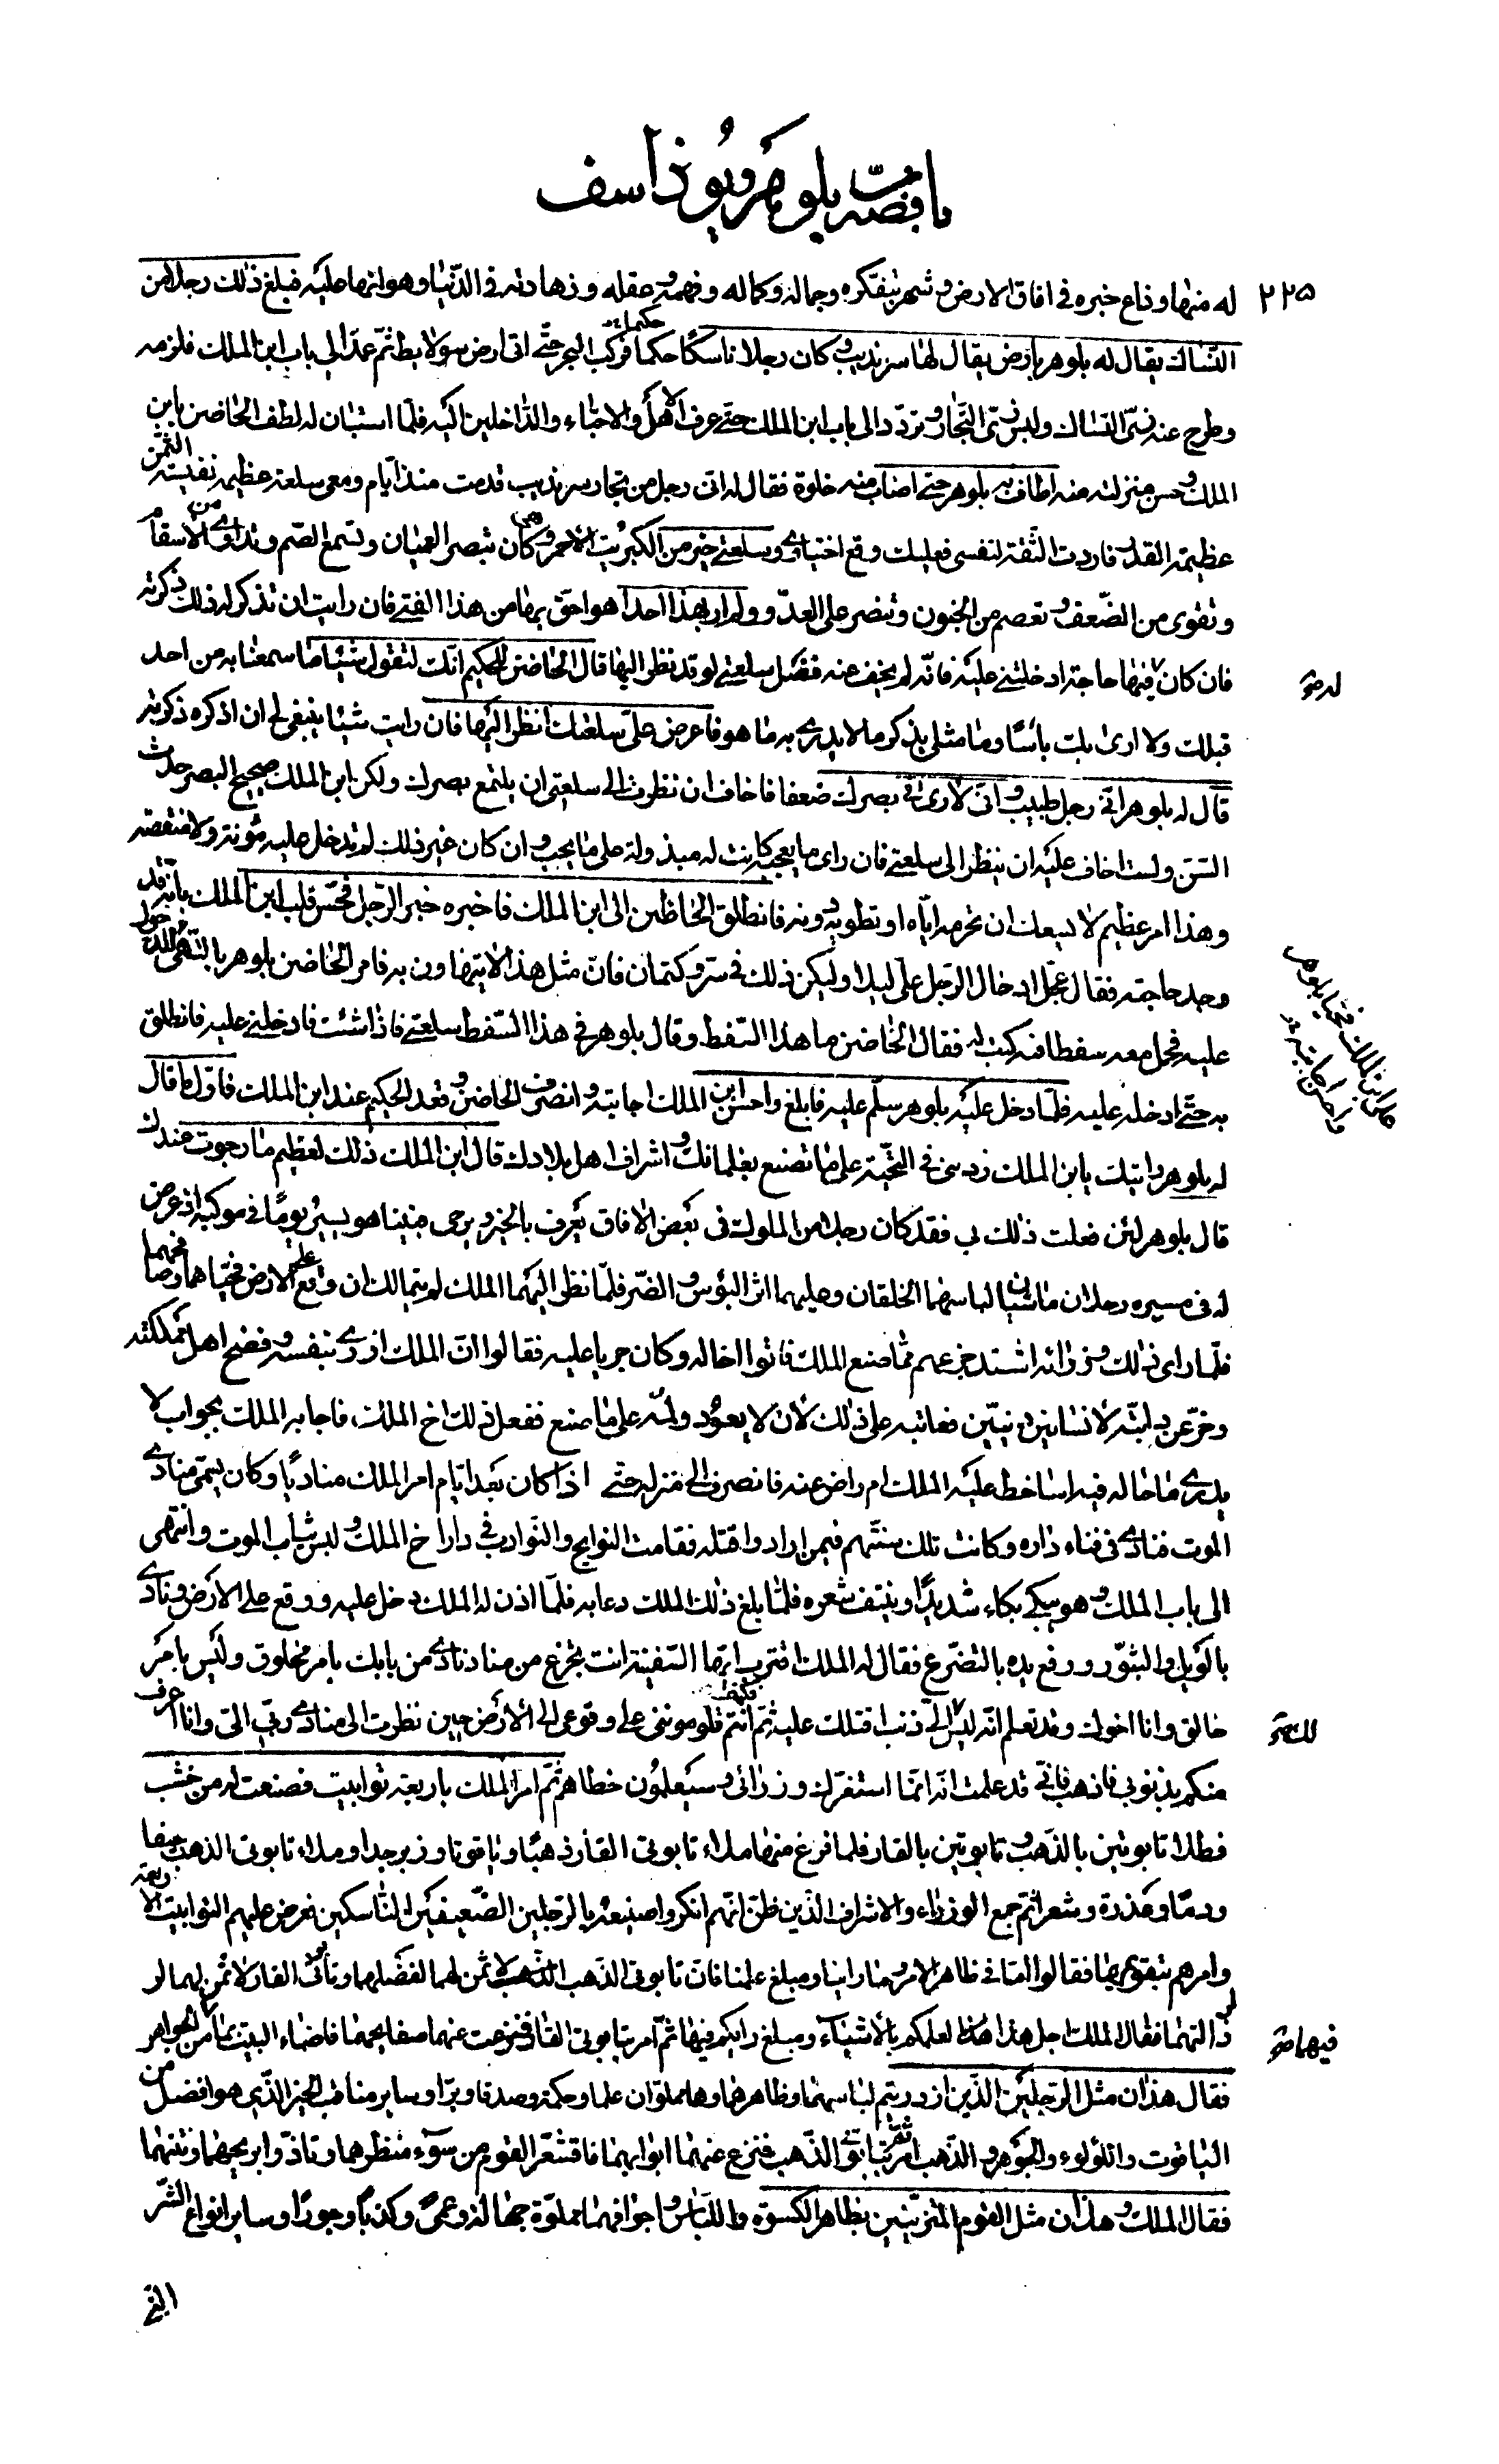 باقصة بلوهر ويوذاسف
۲۲۵
له منها وذاع خبره في افاق الارض وشهر بتفكره وجماله وكماله وفهمه وعقله وزهادته في الدنيا وهوانها عليه فبلغ ذلك رجلا من
النساك يقال له بلوهر بارض يقال لها سرنديب وكان رجلا ناسكا حكيما فركب البحر حتى اتى ارض سولابط ثم عمد الى باب ابن الملك فلزمه
وطرح عنه زي النساك ولبس زي التجار وتردد الى باب ابن الملك حتى عرف الاهل والاحباء والداخلين اليه فلما استبان له لطف الحاضن بابن
الملك وحسن منزلته منه اطاف به بلوهر حتى اصاب منه خلوة فقال له انى رجل من تجار سرنديب قدمت منذ ايام ومعى سلعة عظيمة نفيسة الثمن
عظيمة القدر فاردت الثقة لنفسى فعليك وقع اختيارى وسلعتى خير من الكبريت الاحمر وهى تبصر العميان وتسمع الصم وتداوى من الاسقام
وتقوى من الضعف وتعصم من الجنون وتنصر على العدو ولم ار بهذا احدا هو احق بها من هذا الفتى فان رايت ان تذكر له ذلك ذكرته
فان كان له فيها حاجة ادخلتنى عليه فانه لم يخف عنه فضل سلعتى لو قد نظر اليها قال الحاضن للحكيم انك لتقول شيئا ما سمعنا به من احد
قبلك ولا ارى بك باسا وما مثلى يذكر ما لا يدرى به ما هو فاعرض على سلعتك انظر اليها فان رايت شيئا ينبغى لى ان اذكره ذكرته
قال له بلوهر انى رجل طبيب وانى لارى في بصرك ضعفا فاخاف ان نظرت الى سلعتى ان يلتمع بصرك ولكن ابن الملك صحيح البصر حدث
السن ولست اخاف عليه ان ينظر الى سلعتى فان راى ما يعجبه كانت له مبذولة على ما يحب وان كان غير ذلك لم تدخل عليه مؤنة ولا منقصة
وهذا امر عظيم لا يسعك ان تحرمه اياه او تطويه دونه فانطلق الحاضن الى ابن الملك فاخبره خبر الرجل فحس قلب ابن الملك بانه قد
وجد حاجته فقال عجل ادخال الرجل على ليلا وليكن ذلك في ستر وكتمان فان مثل هذا لا يتهاون به فامر الحاضن بلوهر بالتهيؤ للدخول
عليه فحمل معه سفطا فيه كتب له فقال الحاضن ما هذا السفط وقال بلوهر في هذا السفط سلعتى فاذا شئت فادخلنى عليه فانطلق
به حتى ادخله عليه فلما دخل عليه بلوهر سلم عليه فابلغ واحسن ابن الملك اجابته وانصرف الحاضن وقعد الحكيم عند ابن الملك فاول ما قال
له بلوهر رايتك يابن الملك زدتنى في التحية على ما تصنع بغلمانك واشراف اهل بلادك قال ابن الملك ذلك لعظيم ما رجوت عندك
قال بلوهر لئن فعلت ذلك بى فقد كان رجل من الملوك في بعض الافاق يعرف بالخير ويرجى فبينا هو يسير يوما في موكبه اذ عرض
له في مسيره رجلان ماشيان لباسهما الخلقان وعليهما اثر البؤس والضر فلما نظر اليهما الملك لم يتمالك ان وقع على الارض فحياهما وصافحهما
فلما راى ذلك وزرائه اشتد جزعهم مما صنع الملك فاتوا اخا له وكان جريا عليه فقالوا ان الملك ازرى بنفسه وفضح اهل مملكته
وخر عن دابته لانسانين دنيين فعاتبه على ذلك لان لا يعود ولمه على ما صنع ففعل ذلك اخ الملك، فاجابه الملك بجواب لا
يدرى ما حاله فيه اساخط عليه الملك ام راض عنه فانصرف الى منزله حتى اذا كان بعد ايام امر الملك مناديا وكان يسمى منادى
الموت فنادى في فناء داره وكانت تلك سنتهم فيمن ارادوا قتله فقامت النوايح والنوادب في دار اخ الملك ولبس ثياب الموت وانتهى
الى باب الملك وهو يبكى بكاء شديدا وينتف شعره فلما بلغ ذلك الملك دعا به فلما اذن له الملك دخل عليه ووقع على الارض ونادى
بالويل والثبور ورفع يده بالتضرع فقال له الملك اقترب ايها السفيه انت تجزع من مناد نادى من بابك بامر مخلوق وليس بامر
خالق وانا اخوك وقد تعلم انه ليس لك الى ذنب اقتلك عليه ثم انتم تلوموننى على وقوعى الى الارض حين نظرت الى منادى ربى الى وانا اعرف
منكم بذنوبى فاذهب فانى قد علمت انه انما استغرك وزرائى وسيعلمون خطاهم ثم امر الملك باربعة توابيت فصنعت له من خشب
فطلا تابوتين بالذهب وتابوتين بالقار فلما فرغ منها ملاء تابوتى القار ذهبا وياقوتا وزبرجدا وملاء تابوتى الذهب جيفا
ودما وعذرة وشعرا ثم جمع الوزراء والاشراف الذين ظن انهم انكروا صنيعه بالرجلين الضعيفين الناسكين فعرض عليهم التوابيت الاربعة
وامرهم بتقويمها فقالوا اما في ظاهر الامر وما راينا ومبلغ علمنا فان تابوتى الذهب لا ثمن لهما لفضلهما وتابوتى القار لا ثمن لهما لر
ذالتهما فقال الملك اجل هذا لعلمكم بالاشياء ومبلغ رايكم فيها ثم امر بتابوتى القار فنزعت عنهما صفايحهما فاضاء البيت بما فيهما من الجواهر
فقال هذان مثل الرجلين الذين ازدريتم لباسهما وظاهرهما وهما مملوان علما وحكمة وصدقا وبرا وساير مناقب الخير الذى هو افضل من
الياقوت واللؤلوء والجوهر والذهب ثم امر بتابوتى الذهب فنزع عنهما ابوابهما فاقشعر القوم من سوء منظرهما وتاذوا بريحهما ونتنهما
فقال الملك وهذان مثل القوم المتزينين بظاهر الكسوة واللباس واجوافهما مملوة جهالة وعمى وكذبا وجورا وساير انواع الشر
التى